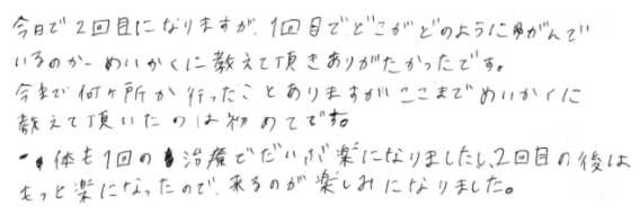 今日で2回目になりますが、1回目でどこがどのようにゆがんで
いるのか めいかくに教えて頂きありがたかったです。
今まで何ヶ所か行ったことありますがここまでめいかくに
教えて頂いたのは初めてです。
体も1回の治療でだいぶ楽になりましたし、2回目の後は
もっと楽になったので、来るのが楽しみになりました。